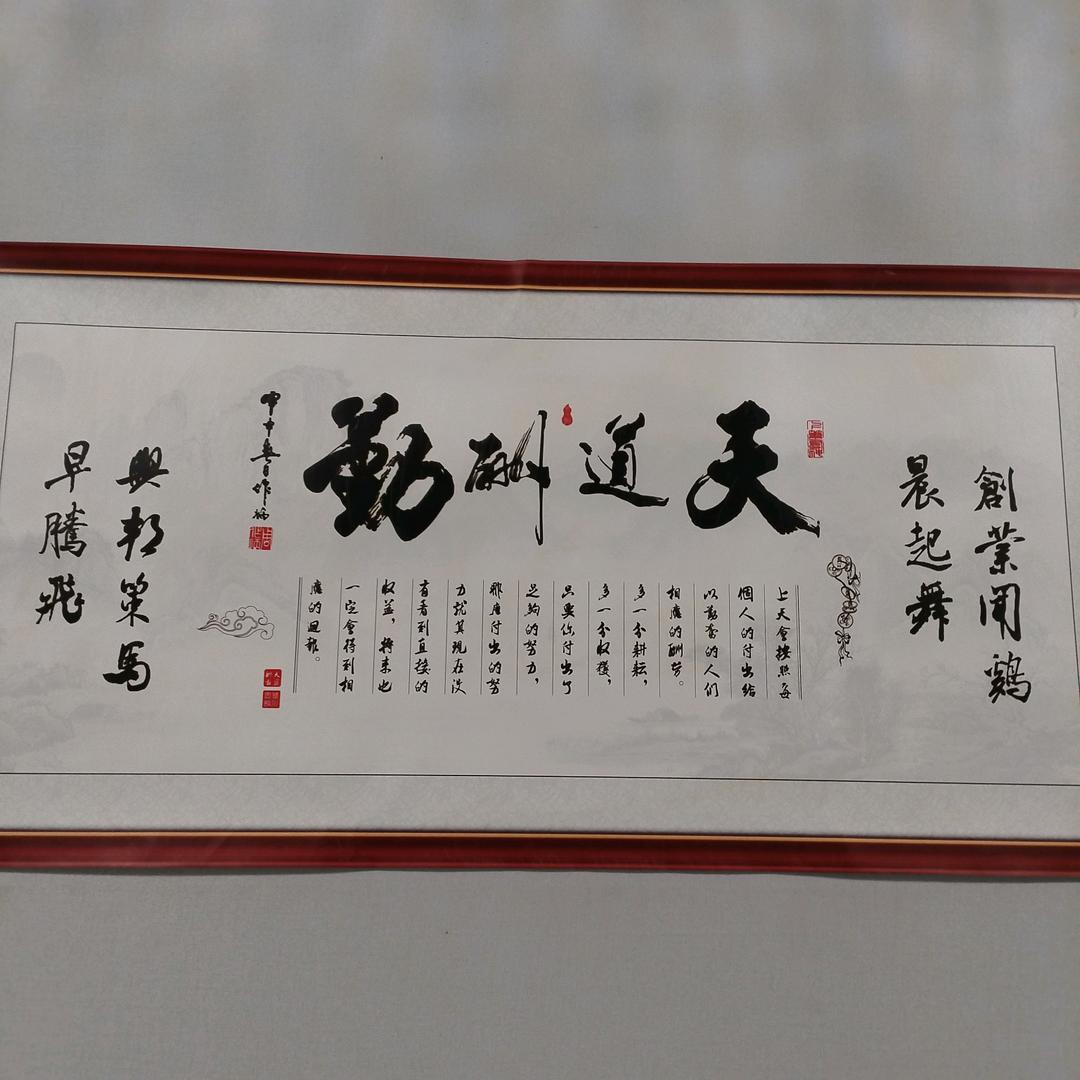 創業聞鷄
晨起舞
天道酬勤
上天會按照每
個人的付出給
以勤奮的人們
相應的酬勞。
多一分耕耘,
多一分收穫,
只要你付出了
足夠的努力,
那應付出的努
力就算現在沒
有看到直接的
收益,將來也
一定會得到相
應的回報。
甲申春日作
興邦策馬
早騰飛